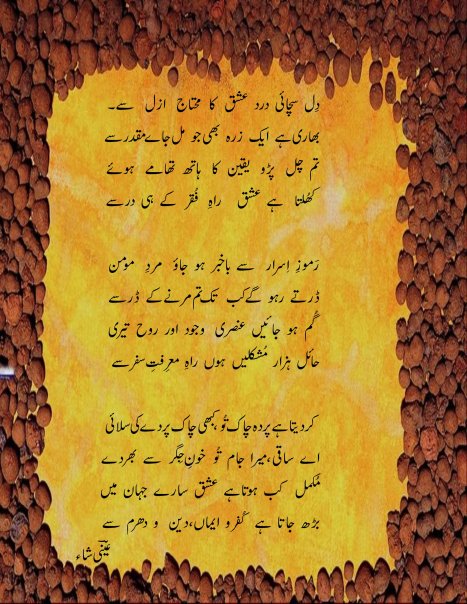 دِل سچائی درد عشق کا محتاج ازل سے۔
بھاری ہے ایک زرہ بھی جو مل جاے مقدر سے
تم چل پڑو یقین کا ہاتھ تھامے ہوئے
کھُلتا ہے عشق راہِ فُقر کے ہی در سے
رَموزِ اِسرار سے باخبر ہو جاؤ مردِ مومن
ڈرتے رہو گے کب تک تم مرنے کے ڈر سے
گُم ہو جائیں عنصری وجود اور روح تیری
حائل ہزار مُشکلیں ہوں راہِ معرفتِ سفر سے
کر دیتا ہے پردہ چاک تُو، کبھی چاک پردے کی سلائی
اے ساقی، میرا جام تُو خونِ جِگر سے بھر دے
مُکمل کب ہوتا ہے عشق سارے جہان میں
بڑھ جاتا ہے کُفر و ایماں، دین و دھرم سے
عینی شاء